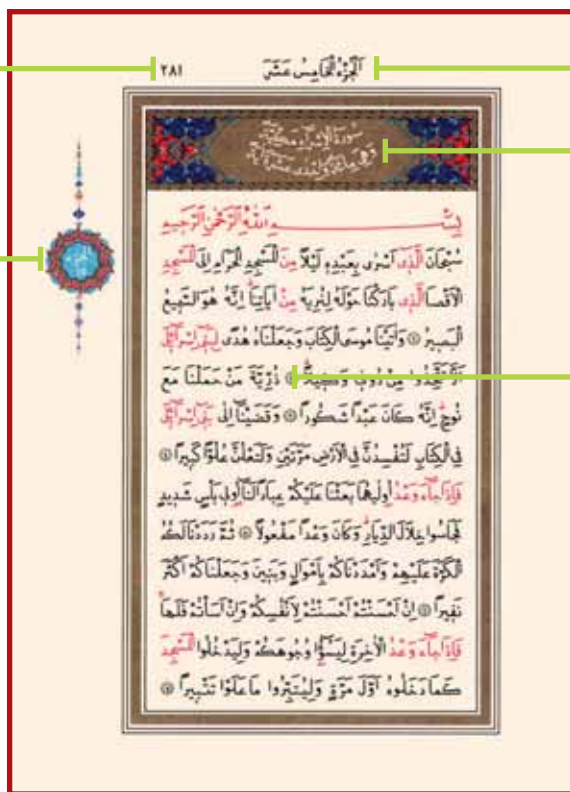 اَلْجُزْءُ الْخَامِسُ عَشَرَ ٢٨١
سُورَةُ الْاِسْرَاءِ مَكِّيَّةٌ
وَهِيَ مِائَةٌ وَاِحْدٰى عَشْرَةَ اٰيَةً
بِسْمِ اللّٰهِ الرَّحْمٰنِ الرَّحِيمِ
سُبْحَانَ الَّذِى اَسْرٰى بِعَبْدِهِ لَيْلًا مِنَ الْمَسْجِدِ الْحَرَامِ اِلَى الْمَسْجِدِ
الْاَقْصَا الَّذِى بَارَكْنَا حَوْلَهُ لِنُرِيَهُ مِنْ اٰيَاتِنَا اِنَّهُ هُوَ السَّمِيعُ
الْبَصِيرُ ۝ وَاٰتَيْنَا مُوسَى الْكِتَابَ وَجَعَلْنَاهُ هُدًى لِبَنِى اِسْرَٓائِلَ
اَلَّا تَتَّخِذُوا مِنْ دُونِى وَكِيلًا ۝ ذُرِّيَّةَ مَنْ حَمَلْنَا مَعَ
نُوحٍ اِنَّهُ كَانَ عَبْدًا شَكُورًا ۝ وَقَضَيْنَا اِلٰى بَنِى اِسْرَٓائِلَ
فِى الْكِتَابِ لَتُفْسِدُنَّ فِى الْاَرْضِ مَرَّتَيْنِ وَلَتَعْلُنَّ عُلُوًّا كَبِيرًا ۝
فَاِذَا جَٓاءَ وَعْدُ اُولٰيهُمَا بَعَثْنَا عَلَيْكُمْ عِبَادًا لَنَا اُولِى بَاْسٍ شَدِيدٍ
فَجَاسُوا خِلَالَ الدِّيَارِ وَكَانَ وَعْدًا مَفْعُولًا ۝ ثُمَّ رَدَدْنَا لَكُمُ
الْكَرَّةَ عَلَيْهِمْ وَاَمْدَدْنَاكُمْ بِاَمْوَالٍ وَبَنِينَ وَجَعَلْنَاكُمْ اَكْثَرَ
نَفِيرًا ۝ اِنْ اَحْسَنْتُمْ اَحْسَنْتُمْ لِاَنْفُسِكُمْ وَاِنْ اَسَاْتُمْ فَلَهَا
فَاِذَا جَٓاءَ وَعْدُ الْاٰخِرَةِ لِيَسُٓؤُا وُجُوهَكُمْ وَلِيَدْخُلُوا الْمَسْجِدَ
كَمَا دَخَلُوهُ اَوَّلَ مَرَّةٍ وَلِيُتَبِّرُوا مَا عَلَوْا تَتْبِيرًا ۝